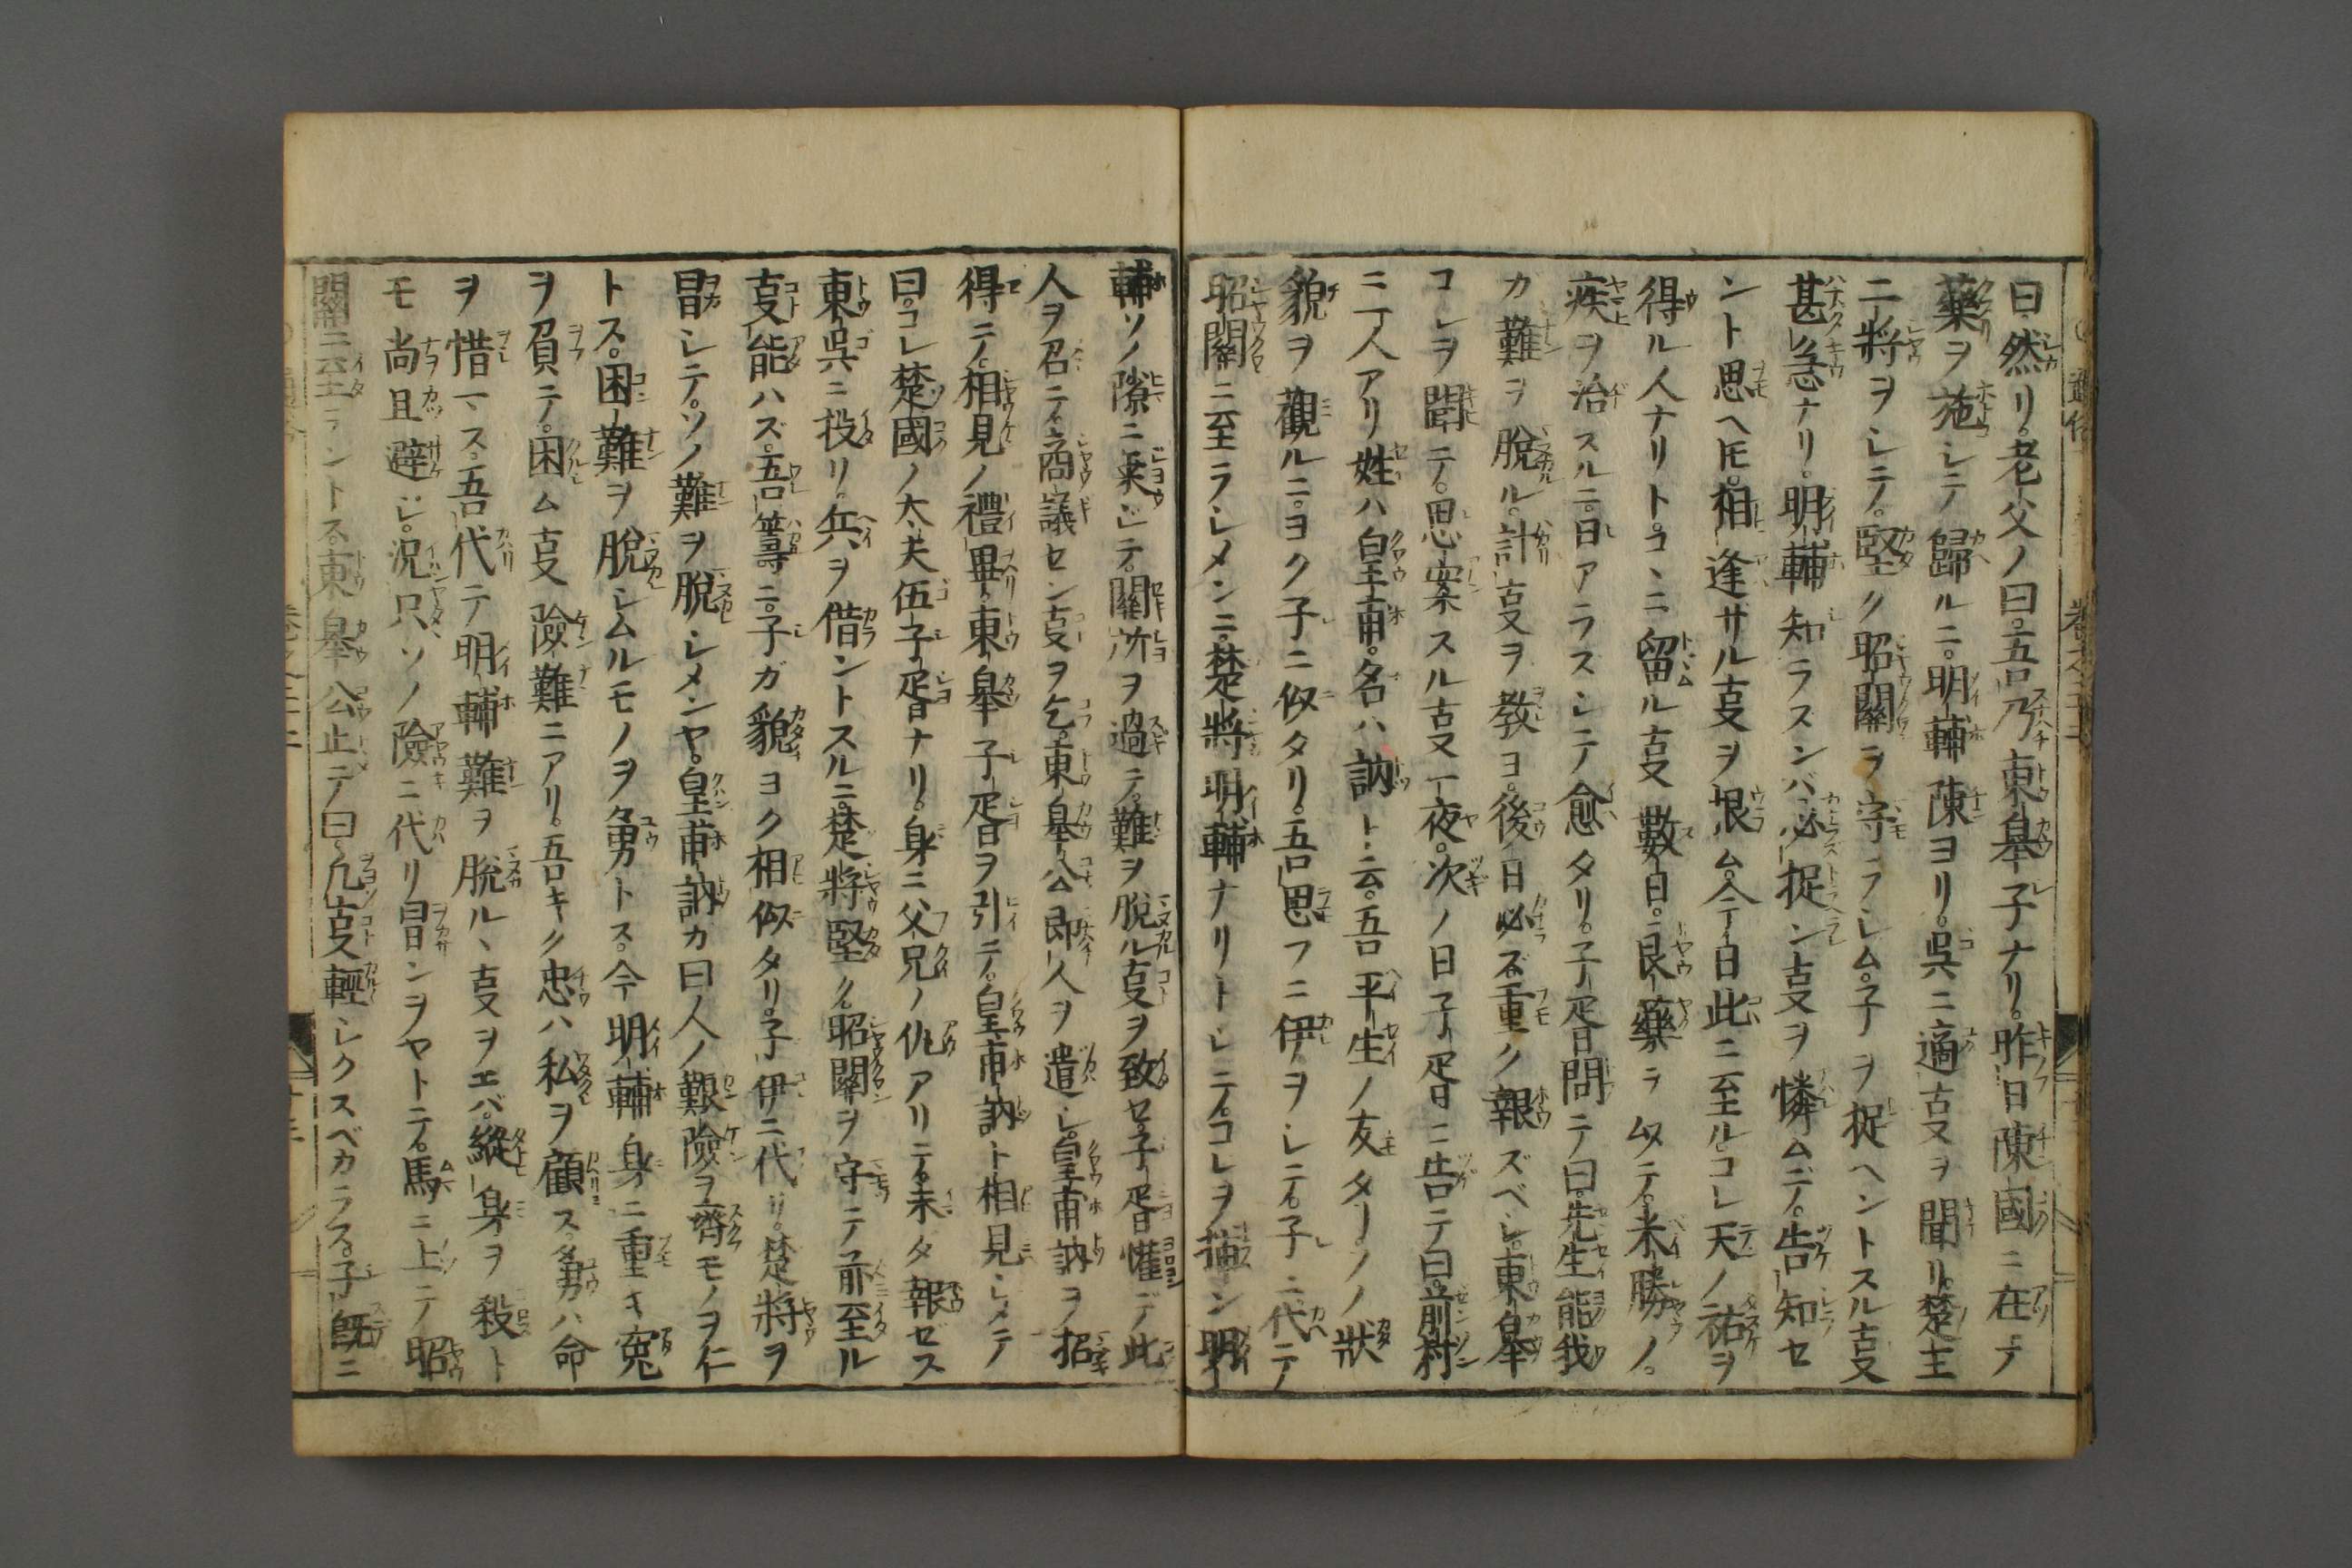 曰然リ。老父ノ曰。吾乃東皐子ナリ。昨日陳國ニ在テ
藥ヲ施シテ歸ルニ。明輔陳ヨリ。呉ニ適叓ヲ聞リ。楚王
二將ヲシテ。堅ク昭關ヲ守ラシム。子ヲ捉ヘントスル叓
甚急ナリ。明輔知ラスンバ必捉ン叓ヲ憐ムデ。告知セ
ント思ヘ𪜈。相逢サル叓ヲ恨ム。今日此ニ至ルコレ天ノ祐ヲ
得ル人ナリト。コヽニ留ル叓數日。艮藥ヲ以テ。米勝ノ。
疾ヲ治スルニ。日アラスシテ愈タリ。子胥問テ曰。先生能我
カ難ヲ脫ル。計叓ヲ敎ヨ。後日必ズ重ク報ズベシ。東皐
コレヲ聞テ。思案スル叓一夜。次ノ日子胥ニ告テ曰。前村
ニ一人アリ姓ハ皇甫。名ハ訥ト云。吾平生ノ友タリ。ソノ狀
貌ヲ觀ルニ。ヨク子ニ似タリ。吾思フニ伊ヲシテ。子ニ代テ
昭關ニ至ラシメンニ。楚將明輔ナリトシテ。コレヲ捕ン明
輔ソノ隙ニ乗ジテ。關所ヲ過テ。難ヲ脫ル叓ヲ致セ。子胥懽デ此
人ヲ召テ。商議セン叓ヲ乞。東皐公即人ヲ遣シ。皇甫訥ヲ招
得テ。相見ノ禮畢。東皐子胥ヲ引テ。皇甫訥ト相見シメテ
曰。コレ楚國ノ大夫伍子胥ナリ。身ニ父兄ノ仇アリテ。未タ報ゼス
東呉ニ投リ。兵ヲ借ントスルニ。楚將堅ク。昭關ヲ守テ前至ル
叓能ハズ。吾籌ニ。子ガ貌ヨク相似タリ。子伊ニ代リ。楚將ヲ
冒シテ。ソノ難ヲ脫シメンヤ。皇甫訥カ曰人ノ艱險ヲ濟モノヲ仁
トス。困難ヲ脫シムルモノヲ勇トス。今明輔身ニ重キ寃
ヲ負テ。困ム叓險難ニアリ。吾キク忠ハ私ヲ顧ス。勇ハ命
ヲ惜マス。吾代テ明輔難ヲ脫ルヽ叓ヲエバ。縱身ヲ殺ト
モ尚且避ジ。況只ソノ險ニ代リ冒ンヲヤトテ。馬ニ上テ昭
關ニ至ラントス。東皐公止テ曰凢叓輕シクスベカラス。子既ニ